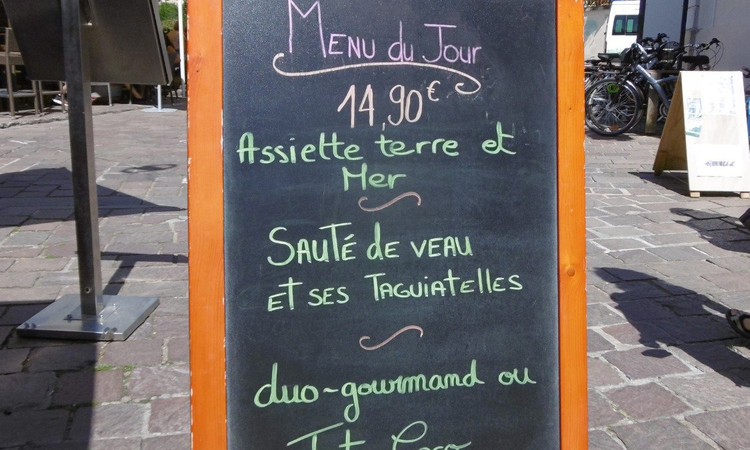 Menu du Jour
14,90€
Assiette terre et
Mer
Sauté de veau
et ses Taguiatelles
duo-gourmand ou